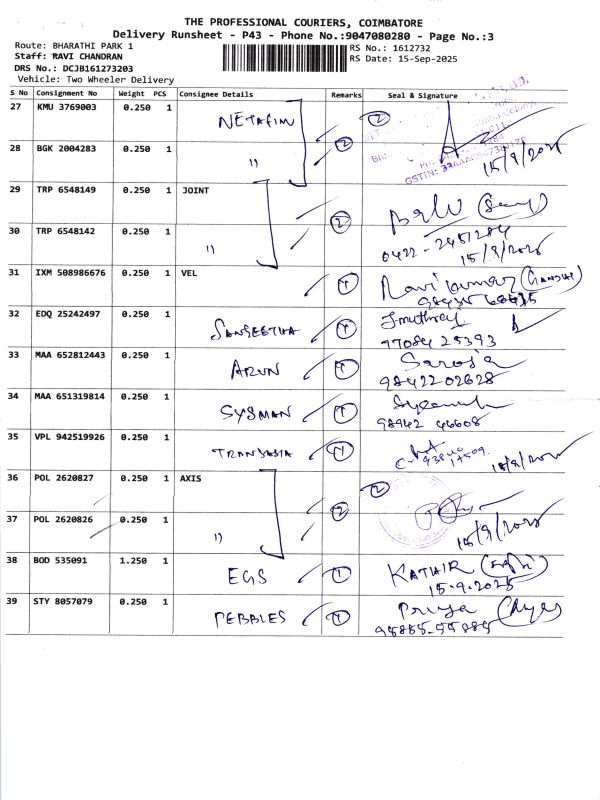 THE PROFESSIONAL COURIERS, COIMBATORE
Delivery Runsheet - P43 - Phone No.:9047080280 - Page No.:3
Route: BHARATHI PARK 1
Staff: RAVI CHANDRAN
DRS No.: DCJB161273203
Vehicle: Two Wheeler Delivery
RS No.: 1612732
RS Date: 15-Sep-2025
S No Consignment No Weight PCS Consignee Details Remarks Seal & Signature
27 KMU 3769003 0.250 1 NETAFIM 2
28 BGK 2004283 0.250 1 " 2 15/9/2025
GSTIN: 33
29 TRP 6548149 0.250 1 JOINT
30 TRP 6548142 0.250 1 " 2 0422-2451284
15/9/2025
31 IXM 508986676 0.250 1 VEL 1 Ravi kumar
32 EDQ 25242497 0.250 1 SANGEETHA 1
97084 25393
33 MAA 652812443 0.250 1 ARUN 1 Saroja
98422 02628
34 MAA 651319814 0.250 1 SYSMAN 1
98942 46608
35 VPL 942519926 0.250 1 TRANSASIA 1
36 POL 2620827 0.250 1 AXIS 2
37 POL 2620826 0.250 1 " 2 15/9/2025
38 BOD 535091 1.250 1 EGS 1 KATHIR
15.9.2025
39 STY 8057079 0.250 1 PEBBLES 1 Priya